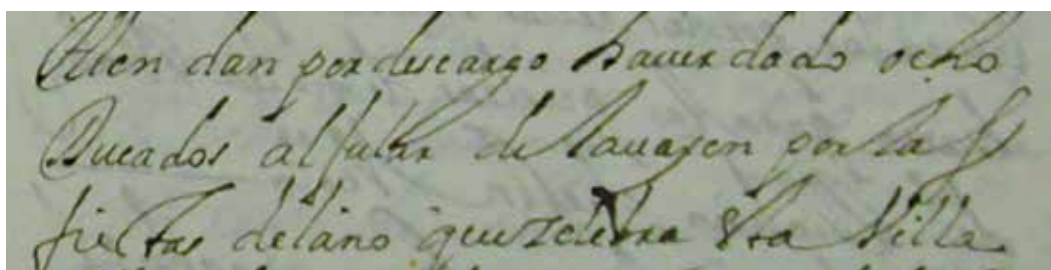 Iten dan por descargo hauer dado ocho
Ducados al Jular de tauajen por las
fiestas del año que zelebra esta Villa